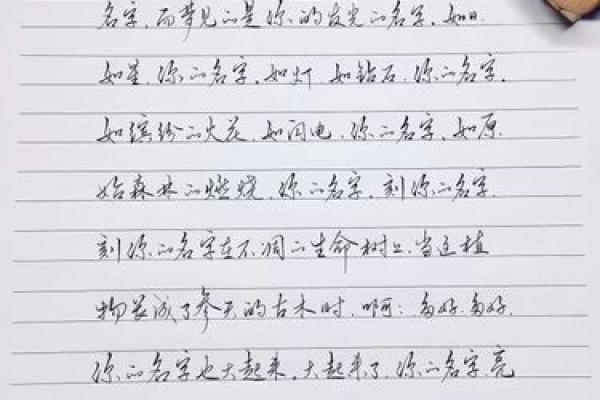 名字，而梦见的是你的发光的名字，如日
如星，你的名字，如灯 如钻石，你的名字，
如缤纷的火花，如闪电，你的名字，如原
始森林的燃烧，你的名字，刻你的名字，
刻你的名字在不凋的生命树上，当这植
物长成了参天的古木时，啊：多好，多好，
你的名字也大起来，大起来了，你的名字，亮